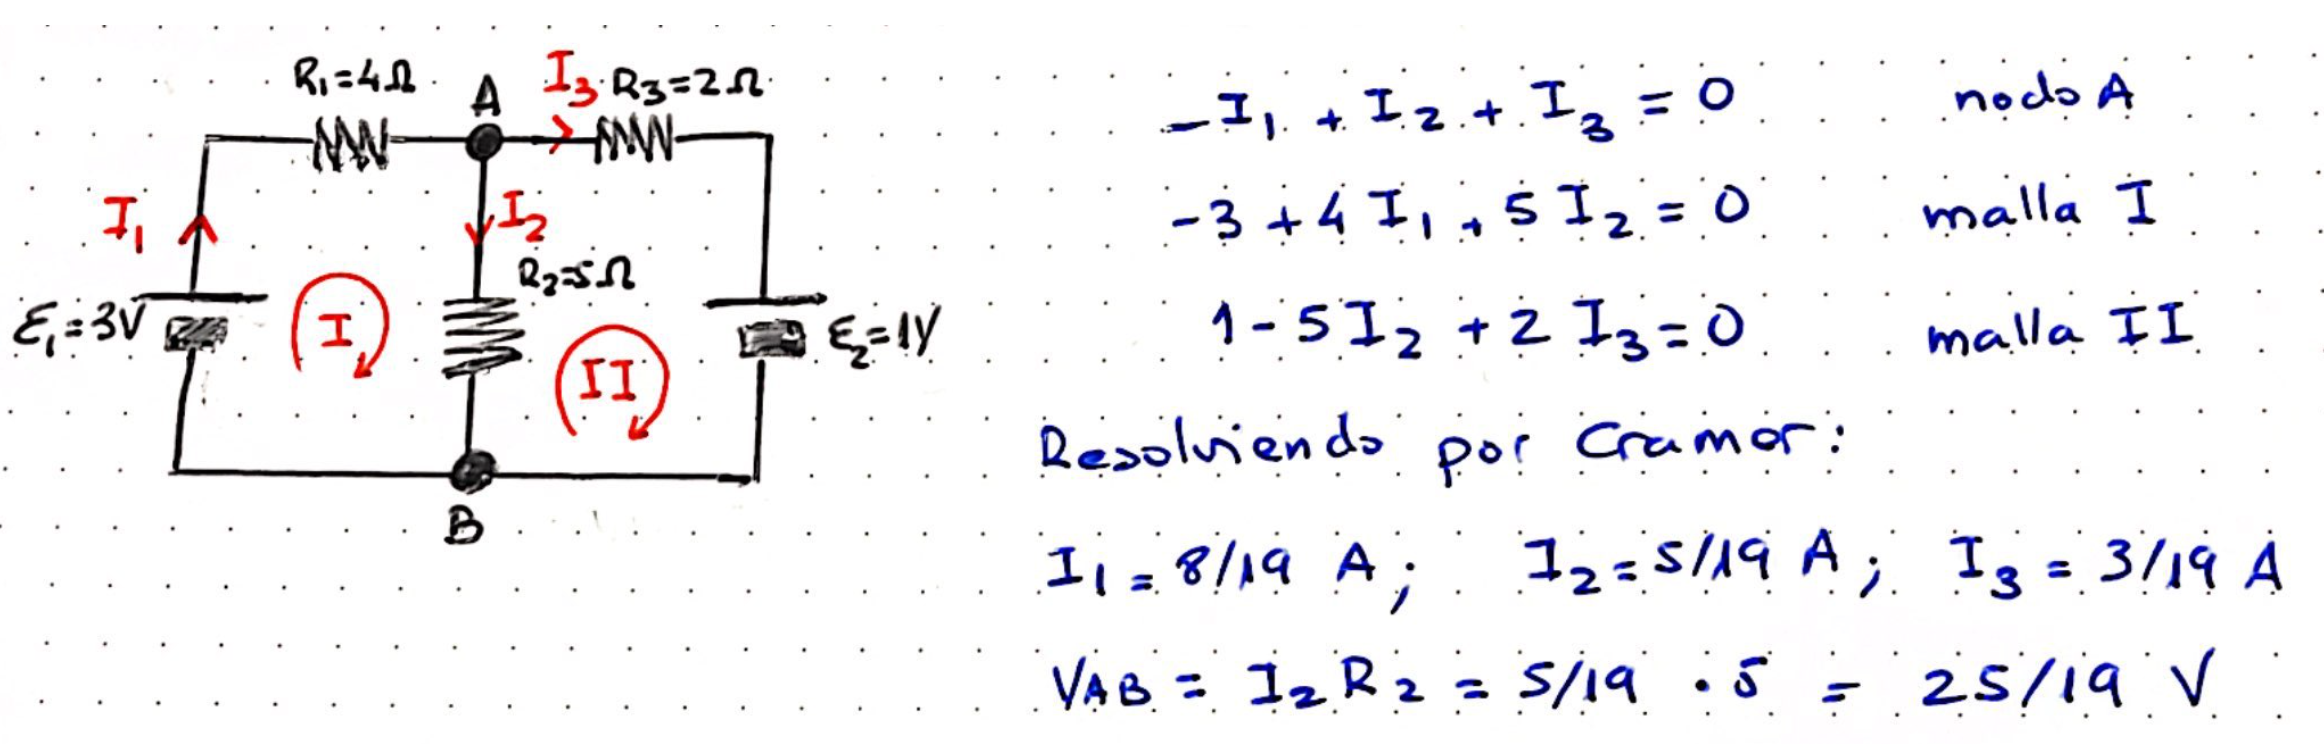 R₁=4Ω A I₃ R₃=2Ω
I₁ I₂
R₂=5Ω
ε₁=3V I II ε₂=1V
B
-I₁ + I₂ + I₃ = 0 nodo A
-3 + 4 I₁ + 5 I₂ = 0 malla I
1 - 5 I₂ + 2 I₃ = 0 malla II
Resolviendo por Cramer:
I₁ = 8/19 A; I₂ = 5/19 A; I₃ = 3/19 A
VAB = I₂ R₂ = 5/19 · 5 = 25/19 V